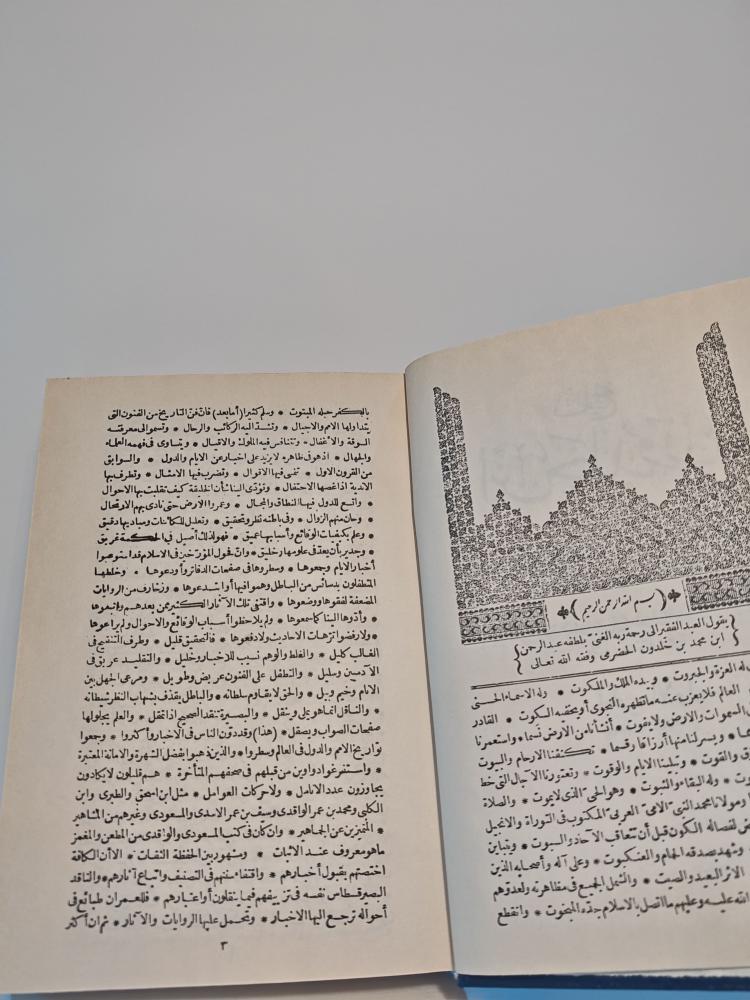 ﴿ بسم الله الرحمن الرحيم ﴾
يقول العبد الفقير الى رحمة ربه الغنى بلطفه عبد الرحمن
ابن محمد بن خلدون الحضرمى وفقه الله تعالى
له العزة والجبروت * وبيده الملك والملكوت * وله الاسماء الحسنى
العالم فلا يعزب عنه ما تظهره النجوى أو يخفيه السكوت * القادر
السموات والارض ولا يفوت * أنشأنا من الارض نسما * واستعمرنا
ويسر لنا منها أرزاقا وقسما * تكنفنا الارحام والبيوت
والقوت * وتبلينا الايام والوقوت * وتعتورنا الآجال التى خط
وله البقاء والثبوت * وهو الحى الذى لا يموت * والصلاة
ومولانا محمد النبى الامى العربى المكتوب فى التوراة والانجيل
لفصاله الكون قبل أن تتعاقب الآحاد والسبوت * ويتباين
وشهد بصدقه الحمام والعنكبوت * وعلى آله وأصحابه الذين
الاثر البعيد والصيت * والشمل الجميع فى مظاهرته ولعدوهم
الله عليه وعليهم ما اتصل بالاسلام جده المبخوت * وانقطع
بالكفر حبله المبتوت * وسلم كثيرا (أما بعد) فان فن التاريخ من الفنون التى
يتداولها الامم والاجيال * وتشد اليه الركائب والرحال * وتسمو الى معرفته
السوقة والأغفال * وتتنافس فيه الملوك والاقيال * ويتساوى فى فهمه العلماء
والجهال * اذ هو فى ظاهره لا يزيد على اخبار عن الايام والدول * والسوابق
من القرون الاول * تنمى فيها الاقوال * وتضرب فيها الامثال * وتطرف بها
الاندية اذا غصها الاحتفال * وتؤدى الينا شأن الخليقة كيف تقلبت بها الاحوال
* واتسع للدول فيها النطاق والمجال * وعمروا الارض حتى نادى بهم الارتحال
* وحان منهم الزوال * وفى باطنه نظر وتحقيق * وتعليل للكائنات ومباديها دقيق
* وعلم بكيفيات الوقائع وأسبابها عميق * فهو لذلك أصيل فى الحكمة عريق
* وجدير بأن يعد فى علومها وخليق * وان فحول المؤرخين فى الاسلام قد استوعبوا
أخبار الايام وجمعوها * وسطروها فى صفحات الدفاتر وأودعوها * وخلطها
المتطفلون بدسائس من الباطل وهموا فيها أو ابتدعوها * وزخارف من الروايات
المضعفة لفقوها ووضعوها * واقتفى تلك الآثار الكثير ممن بعدهم واتبعوها
* وأدوها الينا كما سمعوها * ولم يلاحظوا أسباب الوقائع والاحوال ولم يراعوها
* ولا رفضوا ترهات الاحاديث ولا دفعوها * فالتحقيق قليل * وطرف التنقيح فى
الغالب كليل * والغلط والوهم نسيب للاخبار وخليل * والتقليد عريق فى
الآدميين وسليل * والتطفل على الفنون عريض وطويل * ومرعى الجهل بين
الانام وخيم وبيل * والحق لا يقاوم سلطانه * والباطل يقذف بشهاب النظر شيطانه
* والناقل انما هو يملى وينقل * والبصيرة تنقد الصحيح اذا تمقل * والعلم يجلو لها
صفحات الصواب ويصقل * (هذا) وقد دون الناس فى الاخبار وأكثروا * وجمعوا
تواريخ الامم والدول فى العالم وسطروا * والذين ذهبوا بفضل الشهرة والامامة المعتبرة
* واستفرغوا دواوين من قبلهم فى صحفهم المتأخرة * هم قليلون لا يكادون
يجاوزون عدد الانامل * ولا حركات العوامل * مثل ابن اسحق والطبرى وابن
الكلبى ومحمد بن عمر الواقدى وسيف بن عمر الاسدى والمسعودى وغيرهم من المشاهير
* المتميزين عن الجماهير * وان كان فى كتب المسعودى والواقدى من المطعن والمغمز
ما هو معروف عند الاثبات * ومشهور بين الحفظة الثقات * الا أن الكافة
اختصتهم بقبول أخبارهم * واقتفاء سننهم فى التصنيف واتباع آثارهم * والناقد
البصير قسطاس نفسه فى تزييفهم فيما ينقلون أو اعتبارهم * فللعمران طبائع فى
أحواله ترجع اليها الاخبار * وتحمل عليها الروايات والآثار * ثم ان أكثر
٣